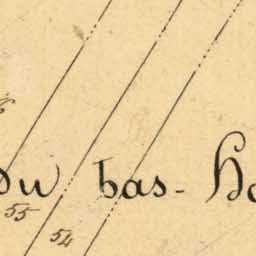 Du bas-Ho
55
54